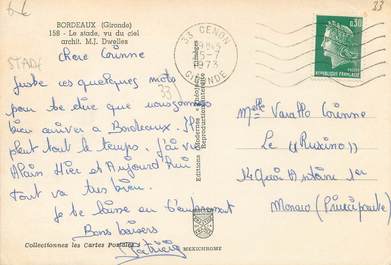 BORDEAUX (Gironde)
158 - Le stade, vu du ciel
archit. M.J. Dwelles
STADE
33
33
33 CENON
18H45
5-7
1973
GIRONDE
0,30
REPUBLIQUE FRANÇAISE
Chère Corinne
Juste ces quelques mots
pour te dire que nous sommes
bien arrivés à Bordeaux. Il
pleut tout le temps. J'ai vu
Alain Hier et Aujourd'hui
tout va très bien.
Je te laisse en t'embrassant
Bons baisers
Patricia
Melle Varatto Corinne
Le "Ruscino"
14 Quai Antoine 1er
Monaco (Principauté)
Reproduction interdite
MEXICHROME
Collectionnez les Cartes Postales